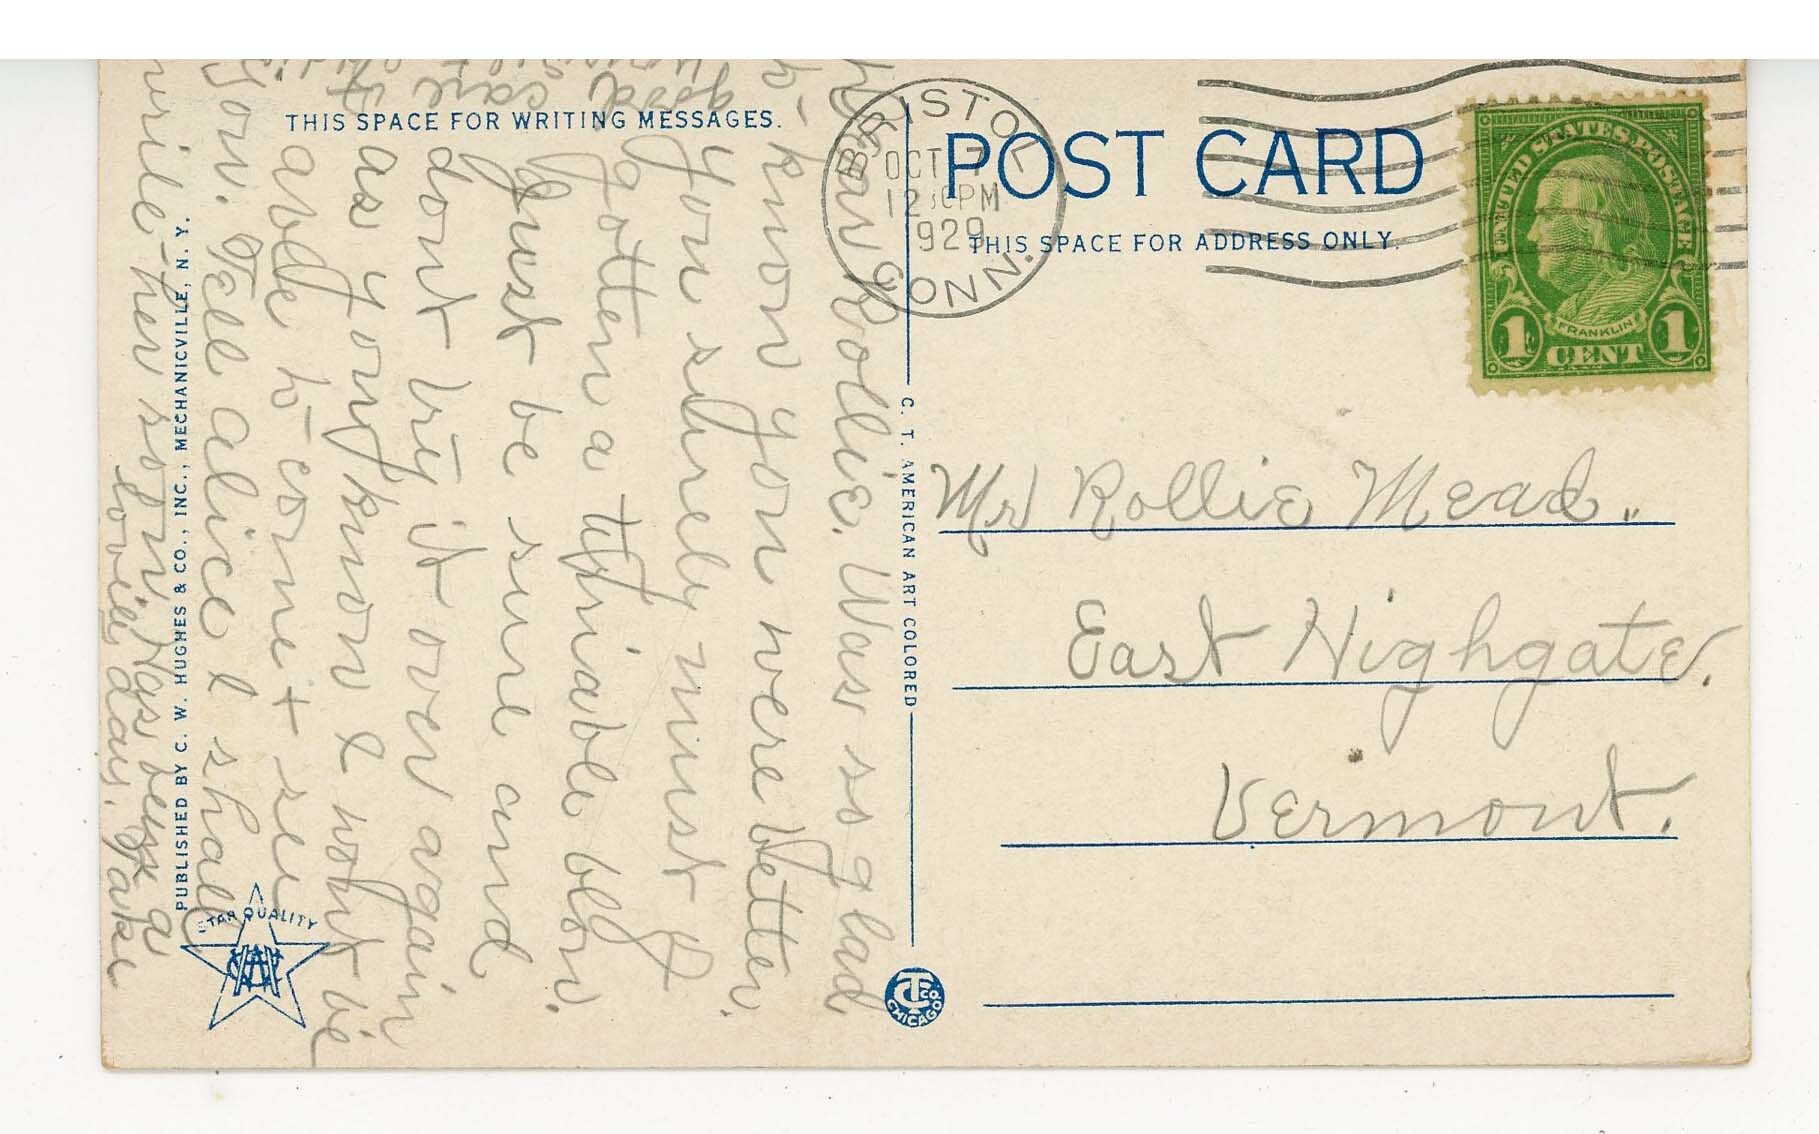 THIS SPACE FOR WRITING MESSAGES.
BRISTOL
OCT 7
12 30PM
1929
CONN.
POST CARD
THIS SPACE FOR ADDRESS ONLY.
UNITED STATES POSTAGE
FRANKLIN
1 CENT 1
Mr Rollie Mead.
East Highgate.
Vermont.
Dear Rollie. Was so glad
to know you were better.
You surely must
gotten a terriable blow.
Just be sure and
dont try it over again
as you know I wont be
able to come + see
you. Tell Alice I shall
write her soon. Has been a
lovely day. Take
good care of
PUBLISHED BY C. W. HUGHES & CO., INC., MECHANICVILLE, N. Y.
C. T. AMERICAN ART COLORED
STAR QUALITY
CT CO.
CHICAGO